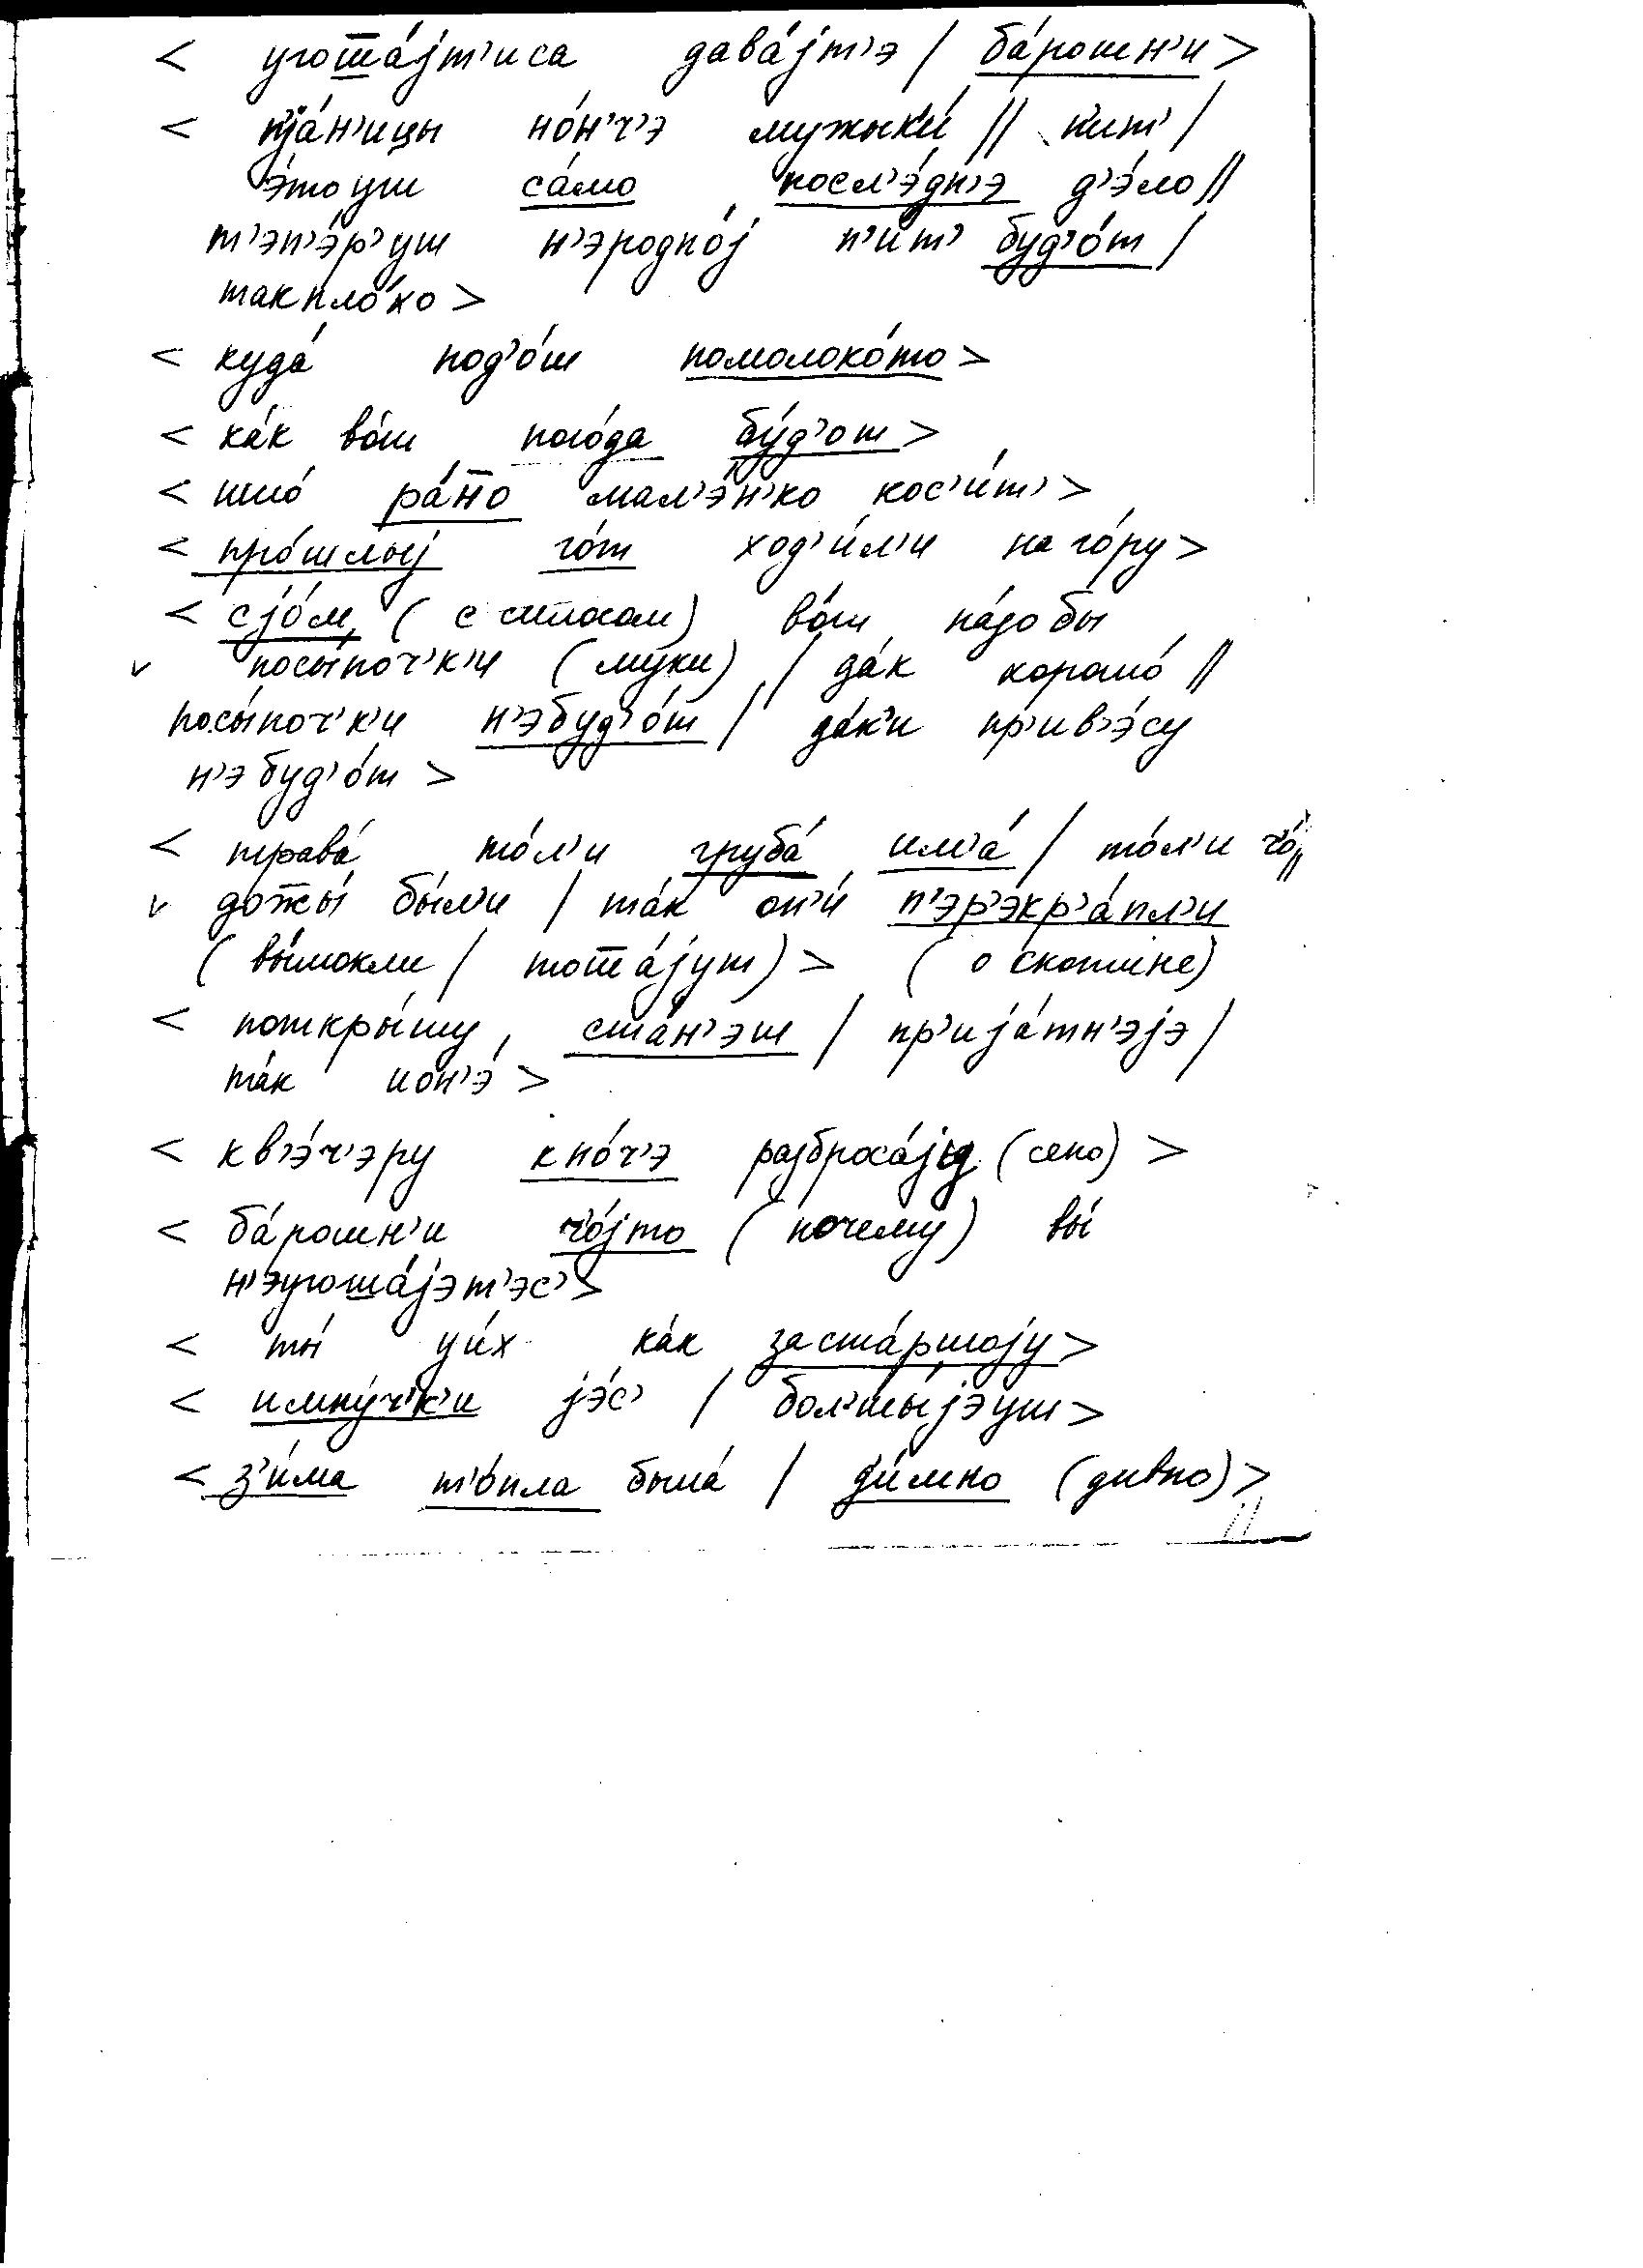 < угоша́јт'иса дава́јт'э / ба́рошн'и >
< пја́н'ицы но́н'ч'э мужык'и́ // п'ит' /
э́тоуш са́мо посл'э́дн'э д'э́ло //
т'эп'э́р'уш н'эродно́ј п'и́т' буд'о́т /
такпло́хо >
< куда́ под'о́ш помолоко́то >
< ка́к во́т пого́да бу́д'от >
< ишо́ ра́но мал'э́н'ко кос'и́т' >
< про́шлыј го́т ход'и́л'и наго́ру >
< сјо́м, ( с силосом ) во́т на́добы
v посы́поч'к'и ( муки ) / да́к хорошо́ //
посы́поч'к'и н'эбуд'о́т / да́к'и пр'ив'э́су
н'эбуд'о́т >
< трава́ то́л'и груба́ им'а́ / то́л'и чо́ //
v дожы́ бы́л'и / та́к он'и́ п'эр'экр'а́пл'и
( вы́мокли / тоша́јут ) > ( о скотине )
< поткры́шу, ста́н'эш / пр'ија́тн'эјэ /
та́к ион'э́ >
< кв'э́ч'эру кно́ч'э разброса́јыд (сено) >
< ба́рошн'и чо́јто ( почему ) вы́
н'эугоша́јэт'эс' >
< ты́ уи́х ка́к заста́ршоју >
< имну́ч'к'и јэ́с' / бол'шы́јэуш >
< з'и́ма т'о́пла была́ / ди́мно (дивно) >